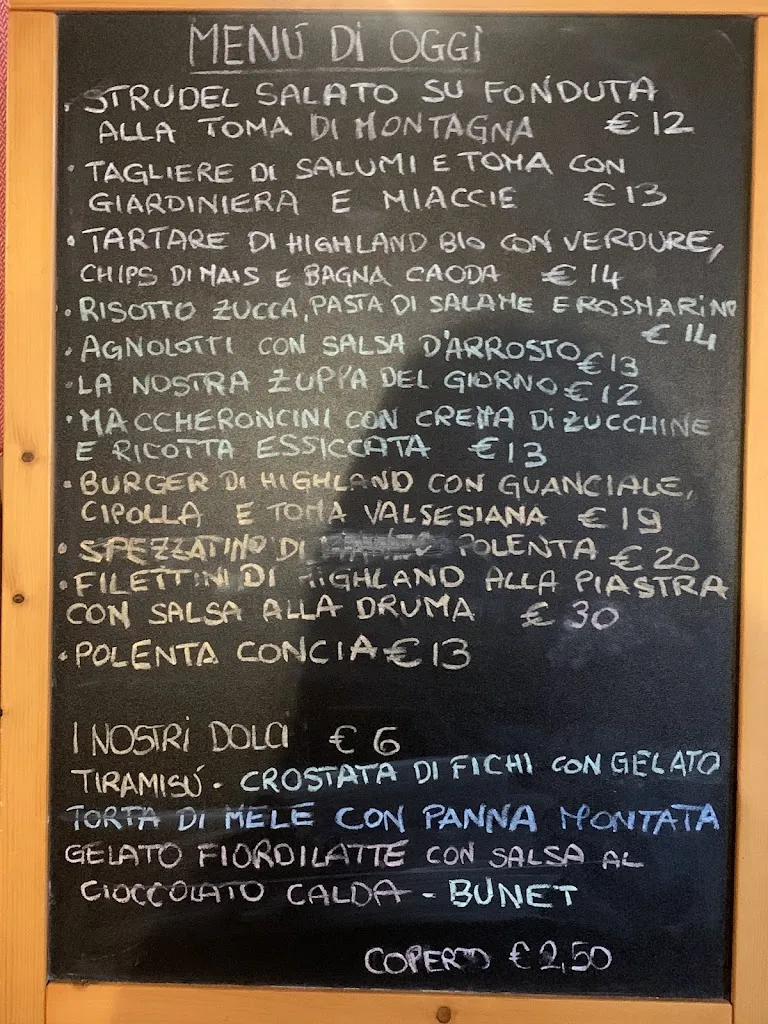 MENÚ DI OGGI
• STRUDEL SALATO SU FONDUTA
ALLA TOMA DI MONTAGNA € 12
• TAGLIERE DI SALUMI E TOMA CON
GIARDINIERA E MIACCIE € 13
• TARTARE DI HIGHLAND BIO CON VERDURE,
CHIPS DI MAIS E BAGNA CAODA € 14
• RISOTTO ZUCCA, PASTA DI SALAME E ROSMARINO
€ 14
• AGNOLOTTI CON SALSA D'ARROSTO € 13
• LA NOSTRA ZUPPA DEL GIORNO € 12
• MACCHERONCINI CON CREMA DI ZUCCHINE
E RICOTTA ESSICCATA € 13
• BURGER DI HIGHLAND CON GUANCIALE,
CIPOLLA E TOMA VALSESIANA € 19
• SPEZZATINO DI POLENTA € 20
• FILETTINI DI HIGHLAND ALLA PIASTRA
CON SALSA ALLA DRUMA € 30
• POLENTA CONCIA € 13
I NOSTRI DOLCI € 6
TIRAMISÚ - CROSTATA DI FICHI CON GELATO
TORTA DI MELE CON PANNA MONTATA
GELATO FIORDILATTE CON SALSA AL
CIOCCOLATO CALDA - BUNET
COPERTO € 2,50